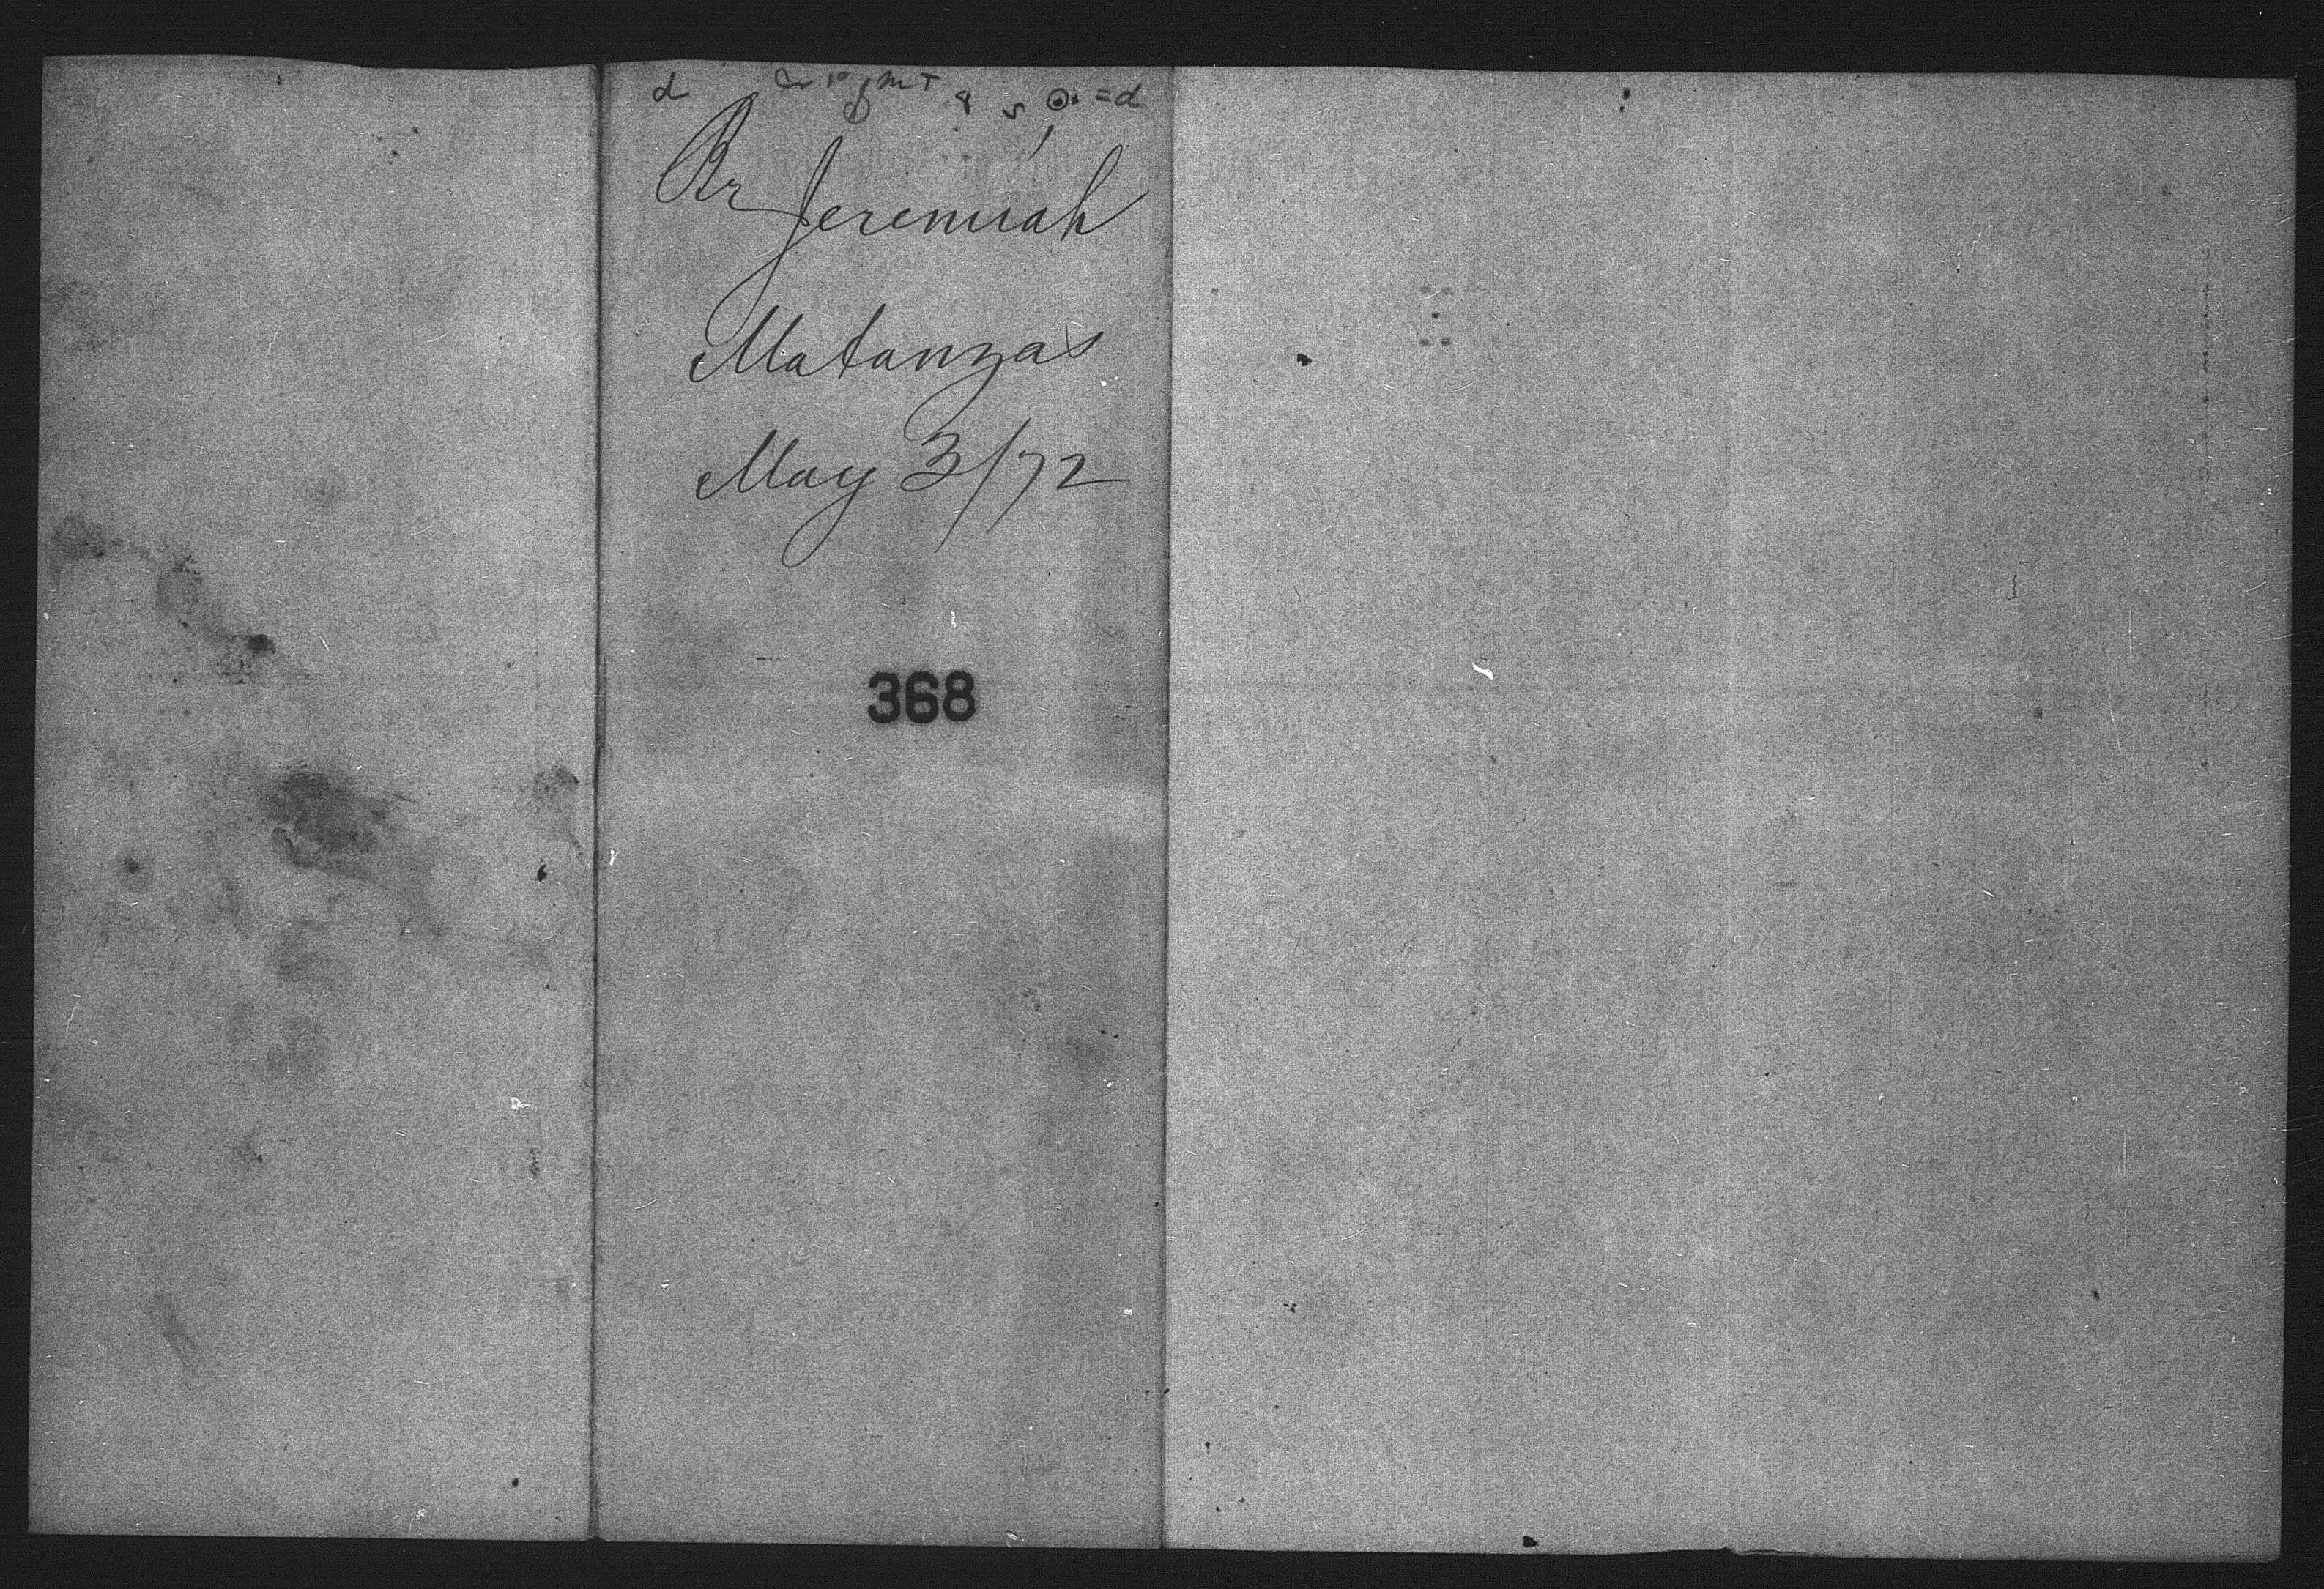 Br Jeremiah
Matanzas
May 3/72
368